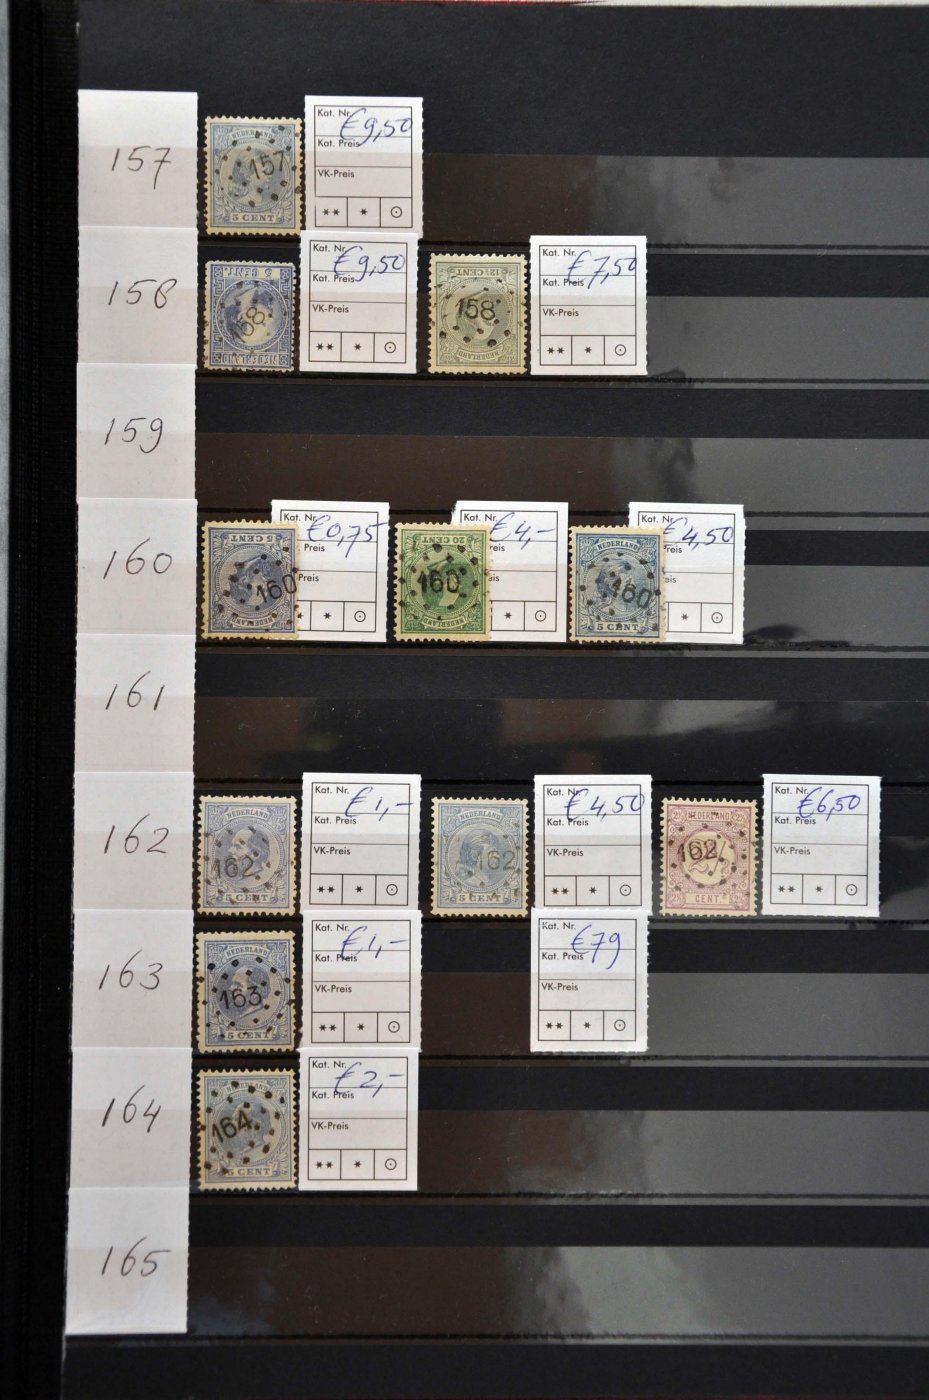 157
NEDERLAND
157
5 CENT
Kat. Nr.
€9,50
Kat. Preis
VK-Preis
** * ⊙
158
5 CENT.
158
NEDERLAND
Kat. Nr.
€9,50
Kat. Preis
VK-Preis
** * ⊙
12½ CENT
158
NEDERLAND
Kat. Nr.
€7,50
Kat. Preis
VK-Preis
** * ⊙
159
160
5 CENT
160
NEDERLAND
Kat. Nr.
€0,75
reis
* ⊙
20 CENT
160
NEDERLAND
Kat. Nr.
€4,-
reis
* ⊙
NEDERLAND
160
5 CENT
Kat. Nr.
€4,50
reis
* ⊙
161
162
NEDERLAND
162
5 CENT
Kat. Nr.
€1,-
Kat. Preis
VK-Preis
** * ⊙
NEDERLAND
162
5 CENT
Kat. Nr.
€4,50
Kat. Preis
VK-Preis
** * ⊙
NEDERLAND
162
CENT.
Kat. Nr.
€6,50
Kat. Preis
VK-Preis
** * ⊙
163
NEDERLAND
163
5 CENT
Kat. Nr.
€1,-
Kat. Preis
VK-Preis
** * ⊙
Kat. Nr.
€79
Kat. Preis
VK-Preis
** * ⊙
164
NEDERLAND
164
5 CENT
Kat. Nr.
€2,-
Kat. Preis
VK-Preis
** * ⊙
165